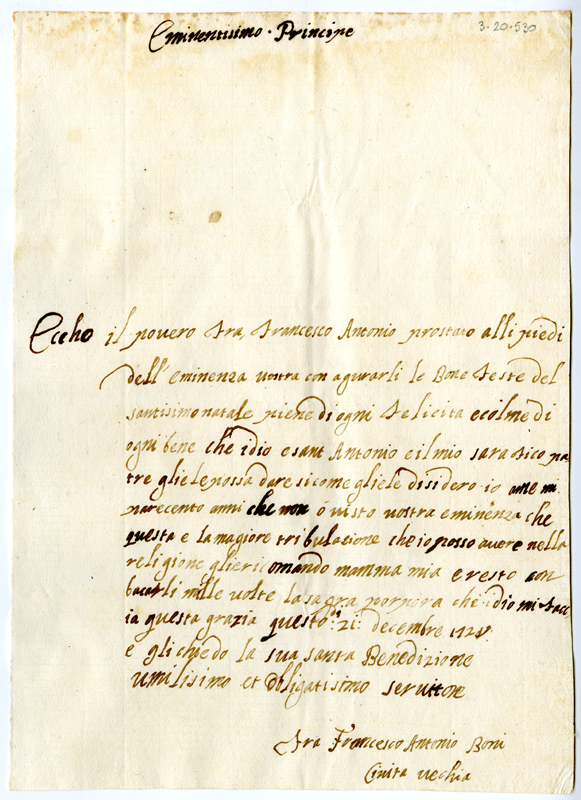 Eminentisimo · Principe
3-20-530
Eccho il povero fra, francesco Antonio prostato alli piedi
dell' eminenza vostra con agurarli le Bone feste del
santisimo natale piene di ogni felicita e colme di
ogni bene che idio e sant Antonio e il mio sarafico pa
tre gliele possa dare sicome gliele disidero io ame mi
pare cento anni che non ó visto vostra eminenza che
questa e la magiore tribulazione che io posso avere nella
religione gliericomando mamma mia e resto con
bacarli mille volte la sagra porpora che idio mi facc
ia questa grazia questo dì 21: decembre
e gli chiedo la sua santa Benedizione
umilisimo et obligatisimo servitore
fra Francesco Antonio Boni
Civita vechia